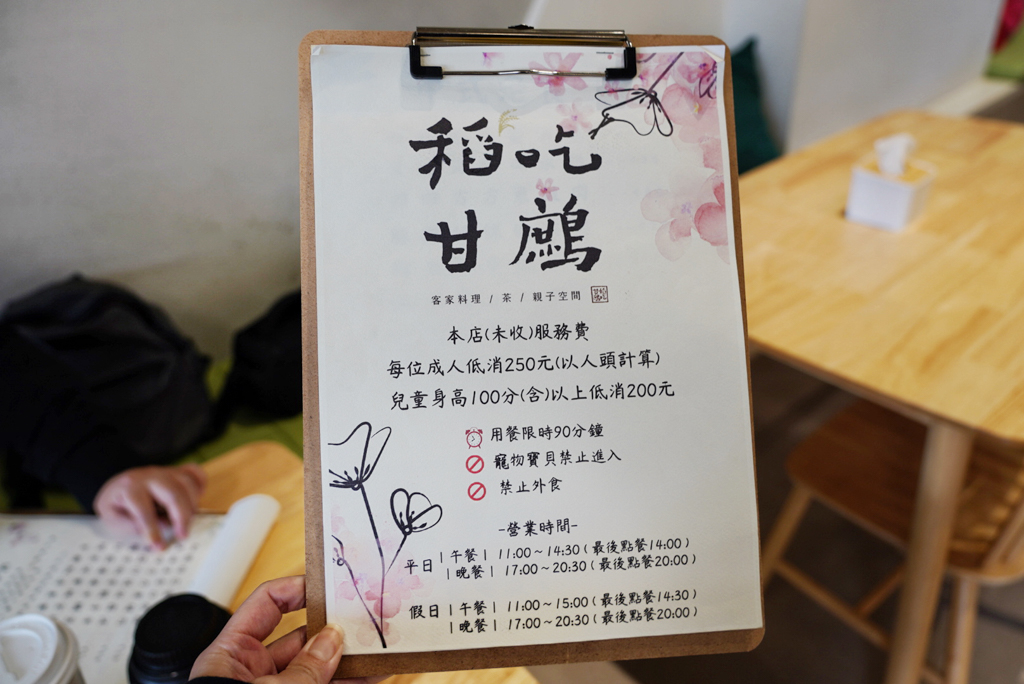 稻吃
甘鷓
客家料理 / 茶 / 親子空間
本店(未收)服務費
每位成人低消250元(以人頭計算)
兒童身高100分(含)以上低消200元
用餐限時90分鐘
寵物寶貝禁止進入
禁止外食
-營業時間-
平日 | 午餐 | 11:00~14:30 (最後點餐14:00)
| 晚餐 | 17:00~20:30 (最後點餐20:00)
假日 | 午餐 | 11:00~15:00 (最後點餐14:30)
| 晚餐 | 17:00~20:30 (最後點餐20:00)